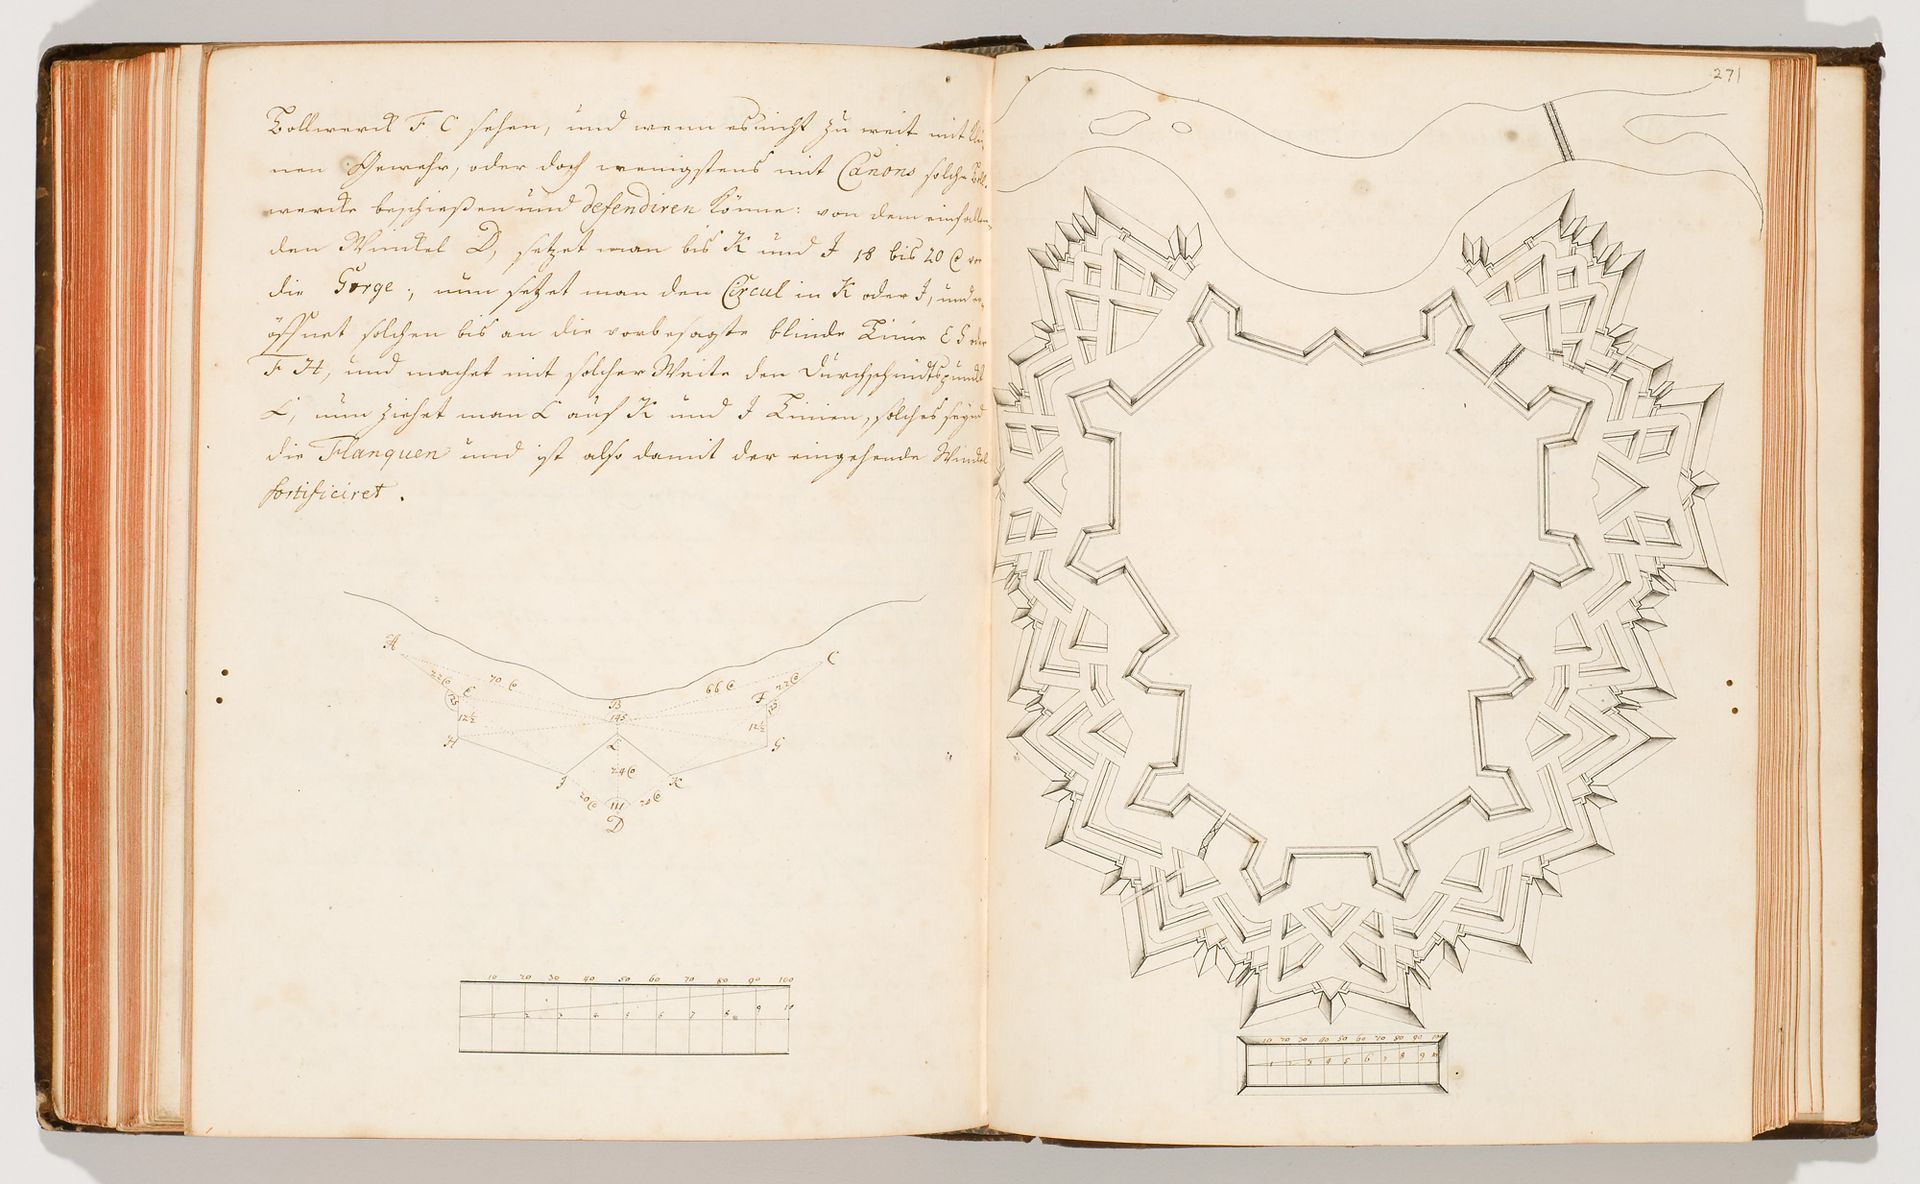 Bollwerck F C sehen, und wenn es nicht zu weit mit
nen Gewehr, oder doch wenigstens mit Canons solche
wercke beschießen und defendiren könne: von dem
den Winckel D, setzet man bis K und J 18 bis 20
die Gorge, nun setzet man den Circul in K oder J, und
öffnet solchen bis an die vorbesagte blinde Linie E G oder
F H, und machet mit solcher Weite den Durchschnidtspunckt
L, nun ziehet man L auf K und J Linien, solches seynd
die Flanquen und ist also damit der eingehende Winckel
fortificiret.
A
C
22
70
66
22
E
F
B
145
12½
12½
H
G
L
J
24
K
20
111
20
D
10 20 30 40 50 60 70 80 90 100
1 2 3 4 5 6 7 8 9 10
271
10 20 30 40 50 60 70 80 90 100
1 2 3 4 5 6 7 8 9 10